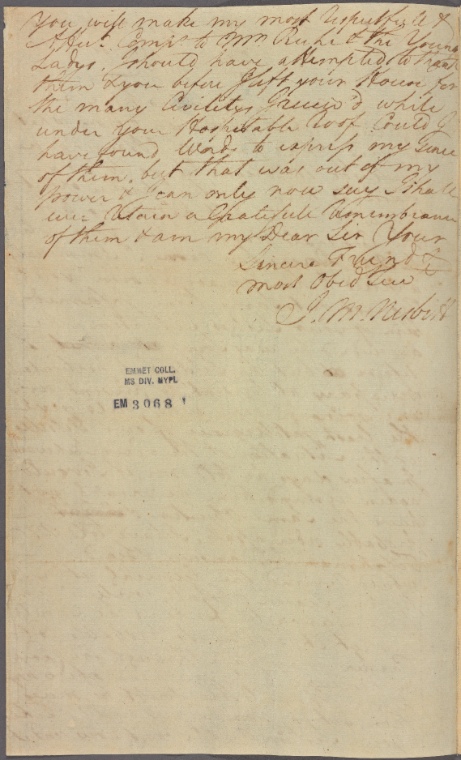 You will make my most Respectful &
Affect. Comps. to Mrs & the Young
Ladys. I should have attempted to thank
them & you before I left your House for
the many Civilitys I receiv'd while
under your Hospitable Roof Could I
have found Words to express my Sense
of them, but that was out of my
power & I can only now say I shall
ever retain a Gratefull Remembrance
of them & am my Dear Sir Your
Sincere Friend &
most Obed Ser
J. M. Nesbitt
EMMET COLL.
MS DIV. NYPL
EM 3068